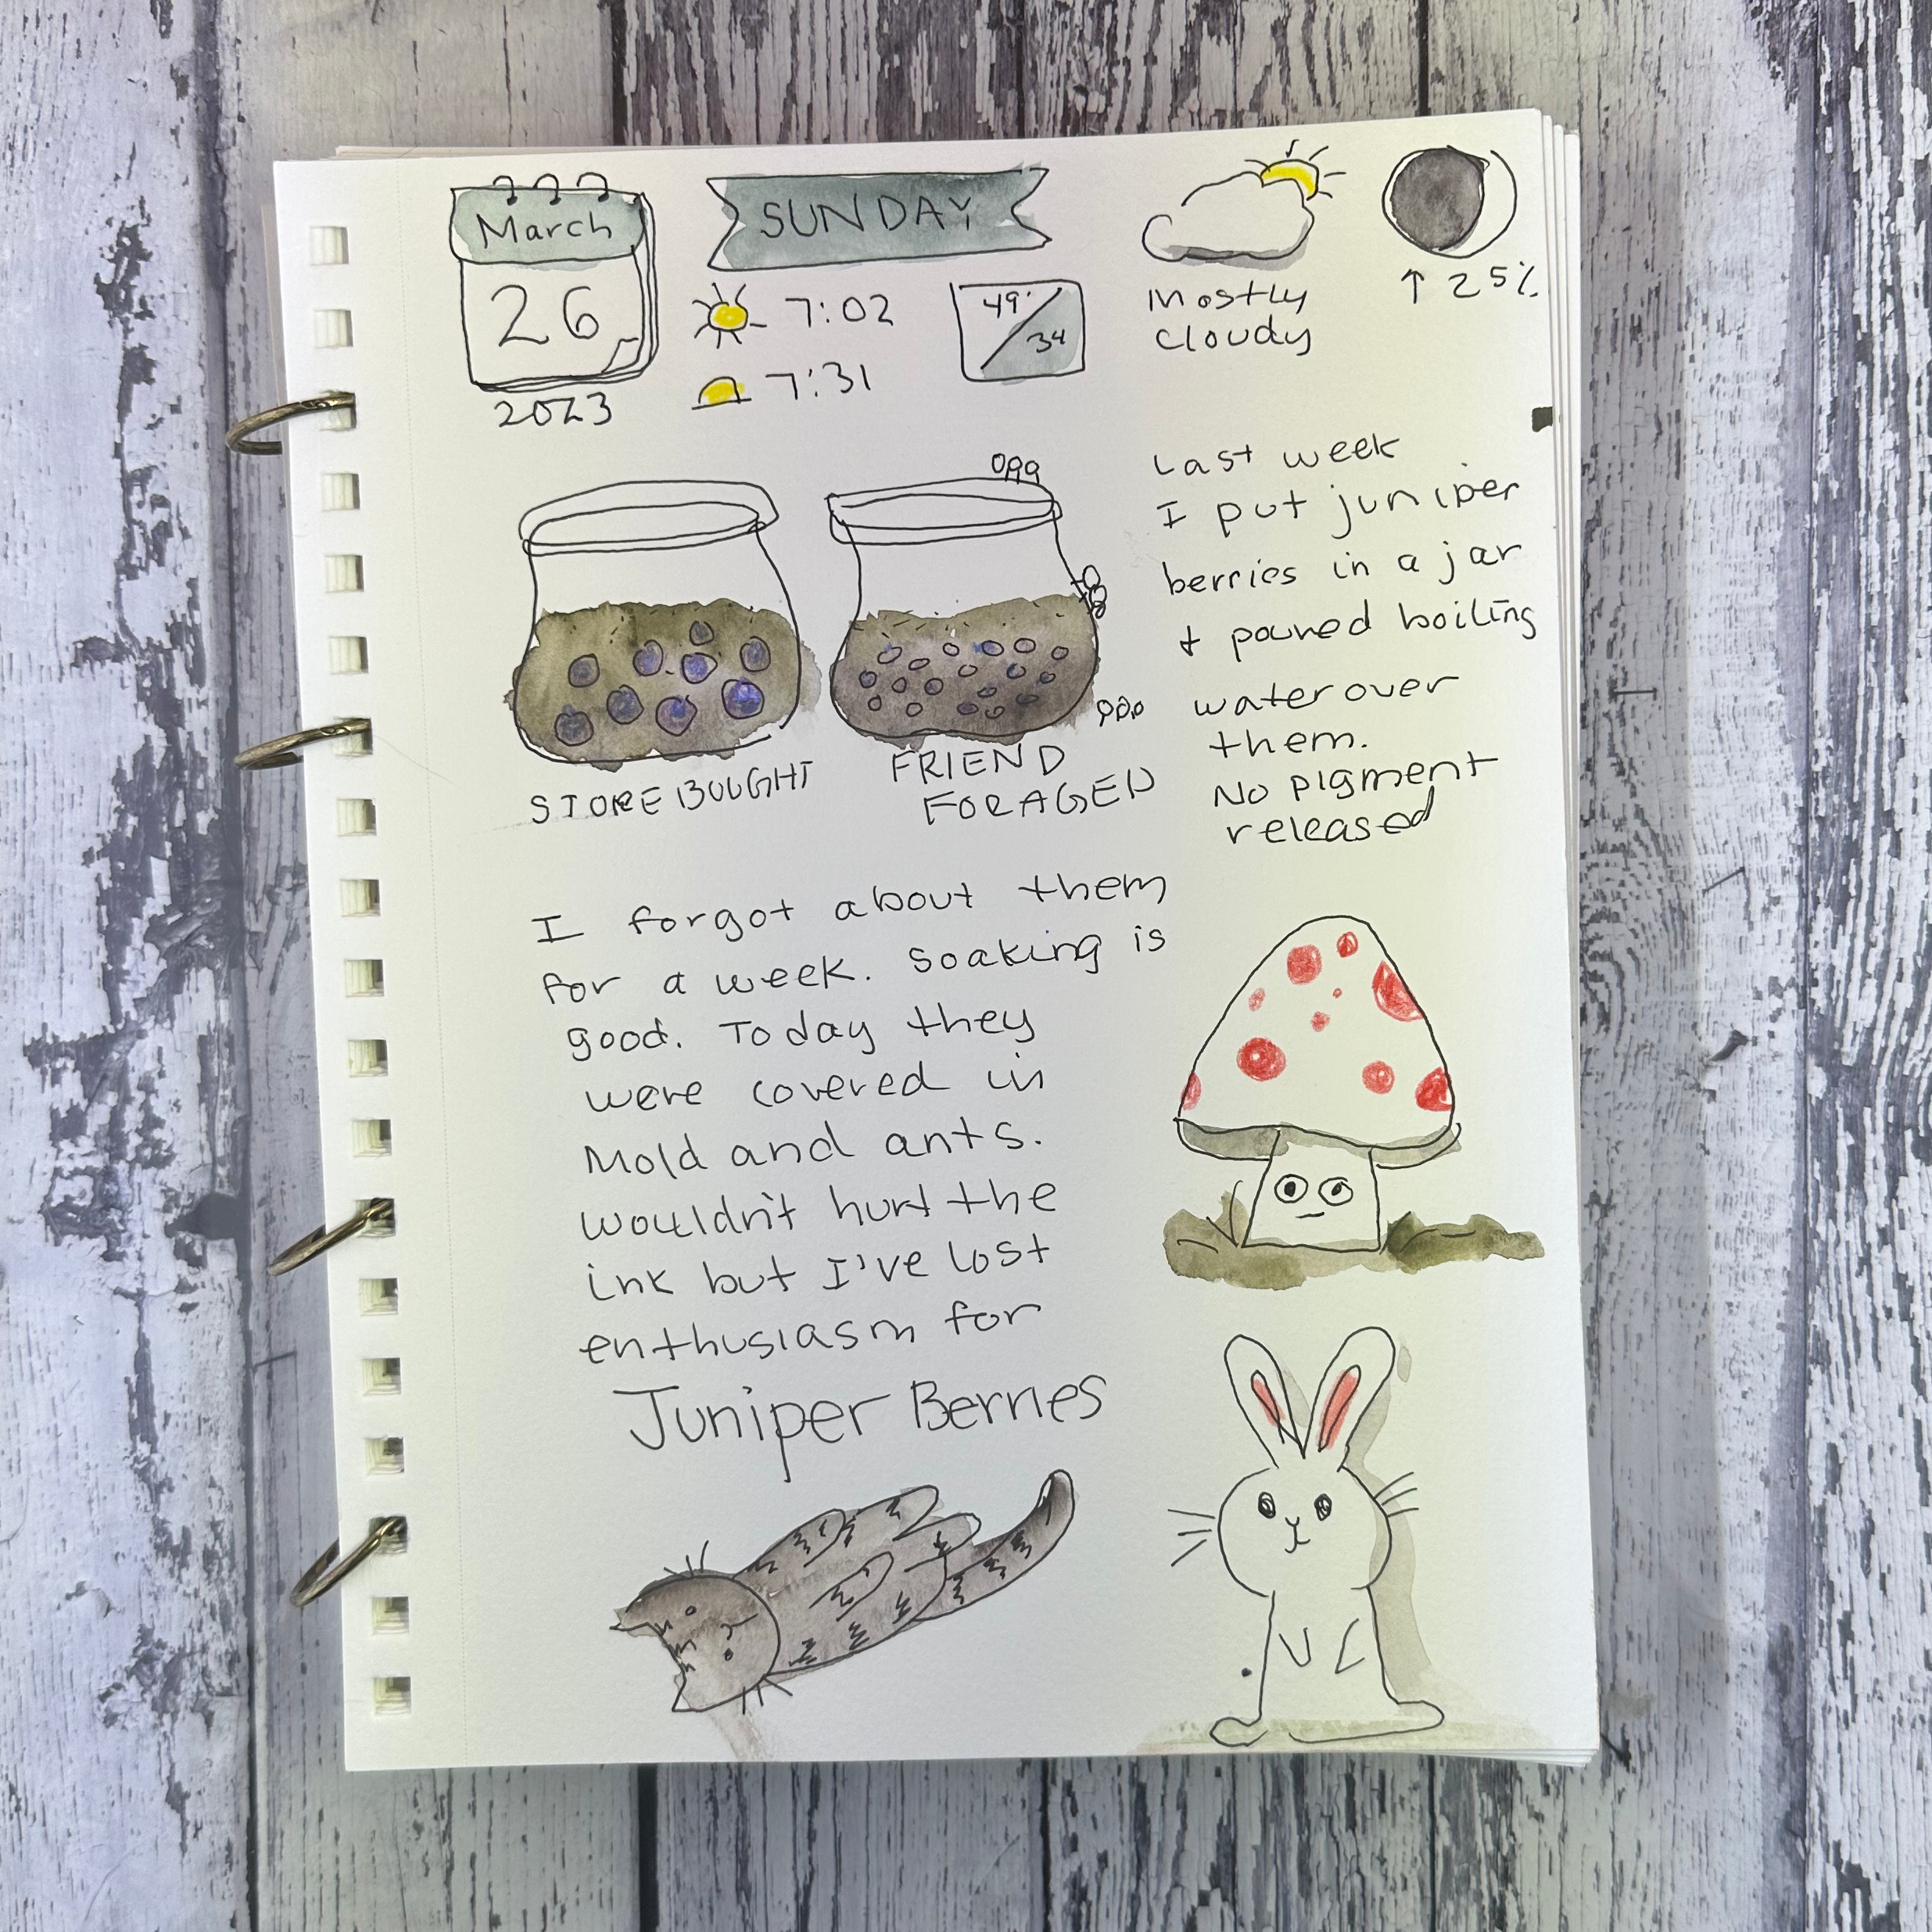 March
26
2023
SUNDAY
7:02
7:31
49°
34
mostly
cloudy
↑ 25%
Last week
I put juniper
berries in a jar
+ poured boiling
water over
them.
No pigment
released
STORE BOUGHT
FRIEND
FORAGED
I forgot about them
for a week. Soaking is
good. Today they
were covered in
Mold and ants.
wouldn't hurt the
ink but I've lost
enthusiasm for
Juniper Berries